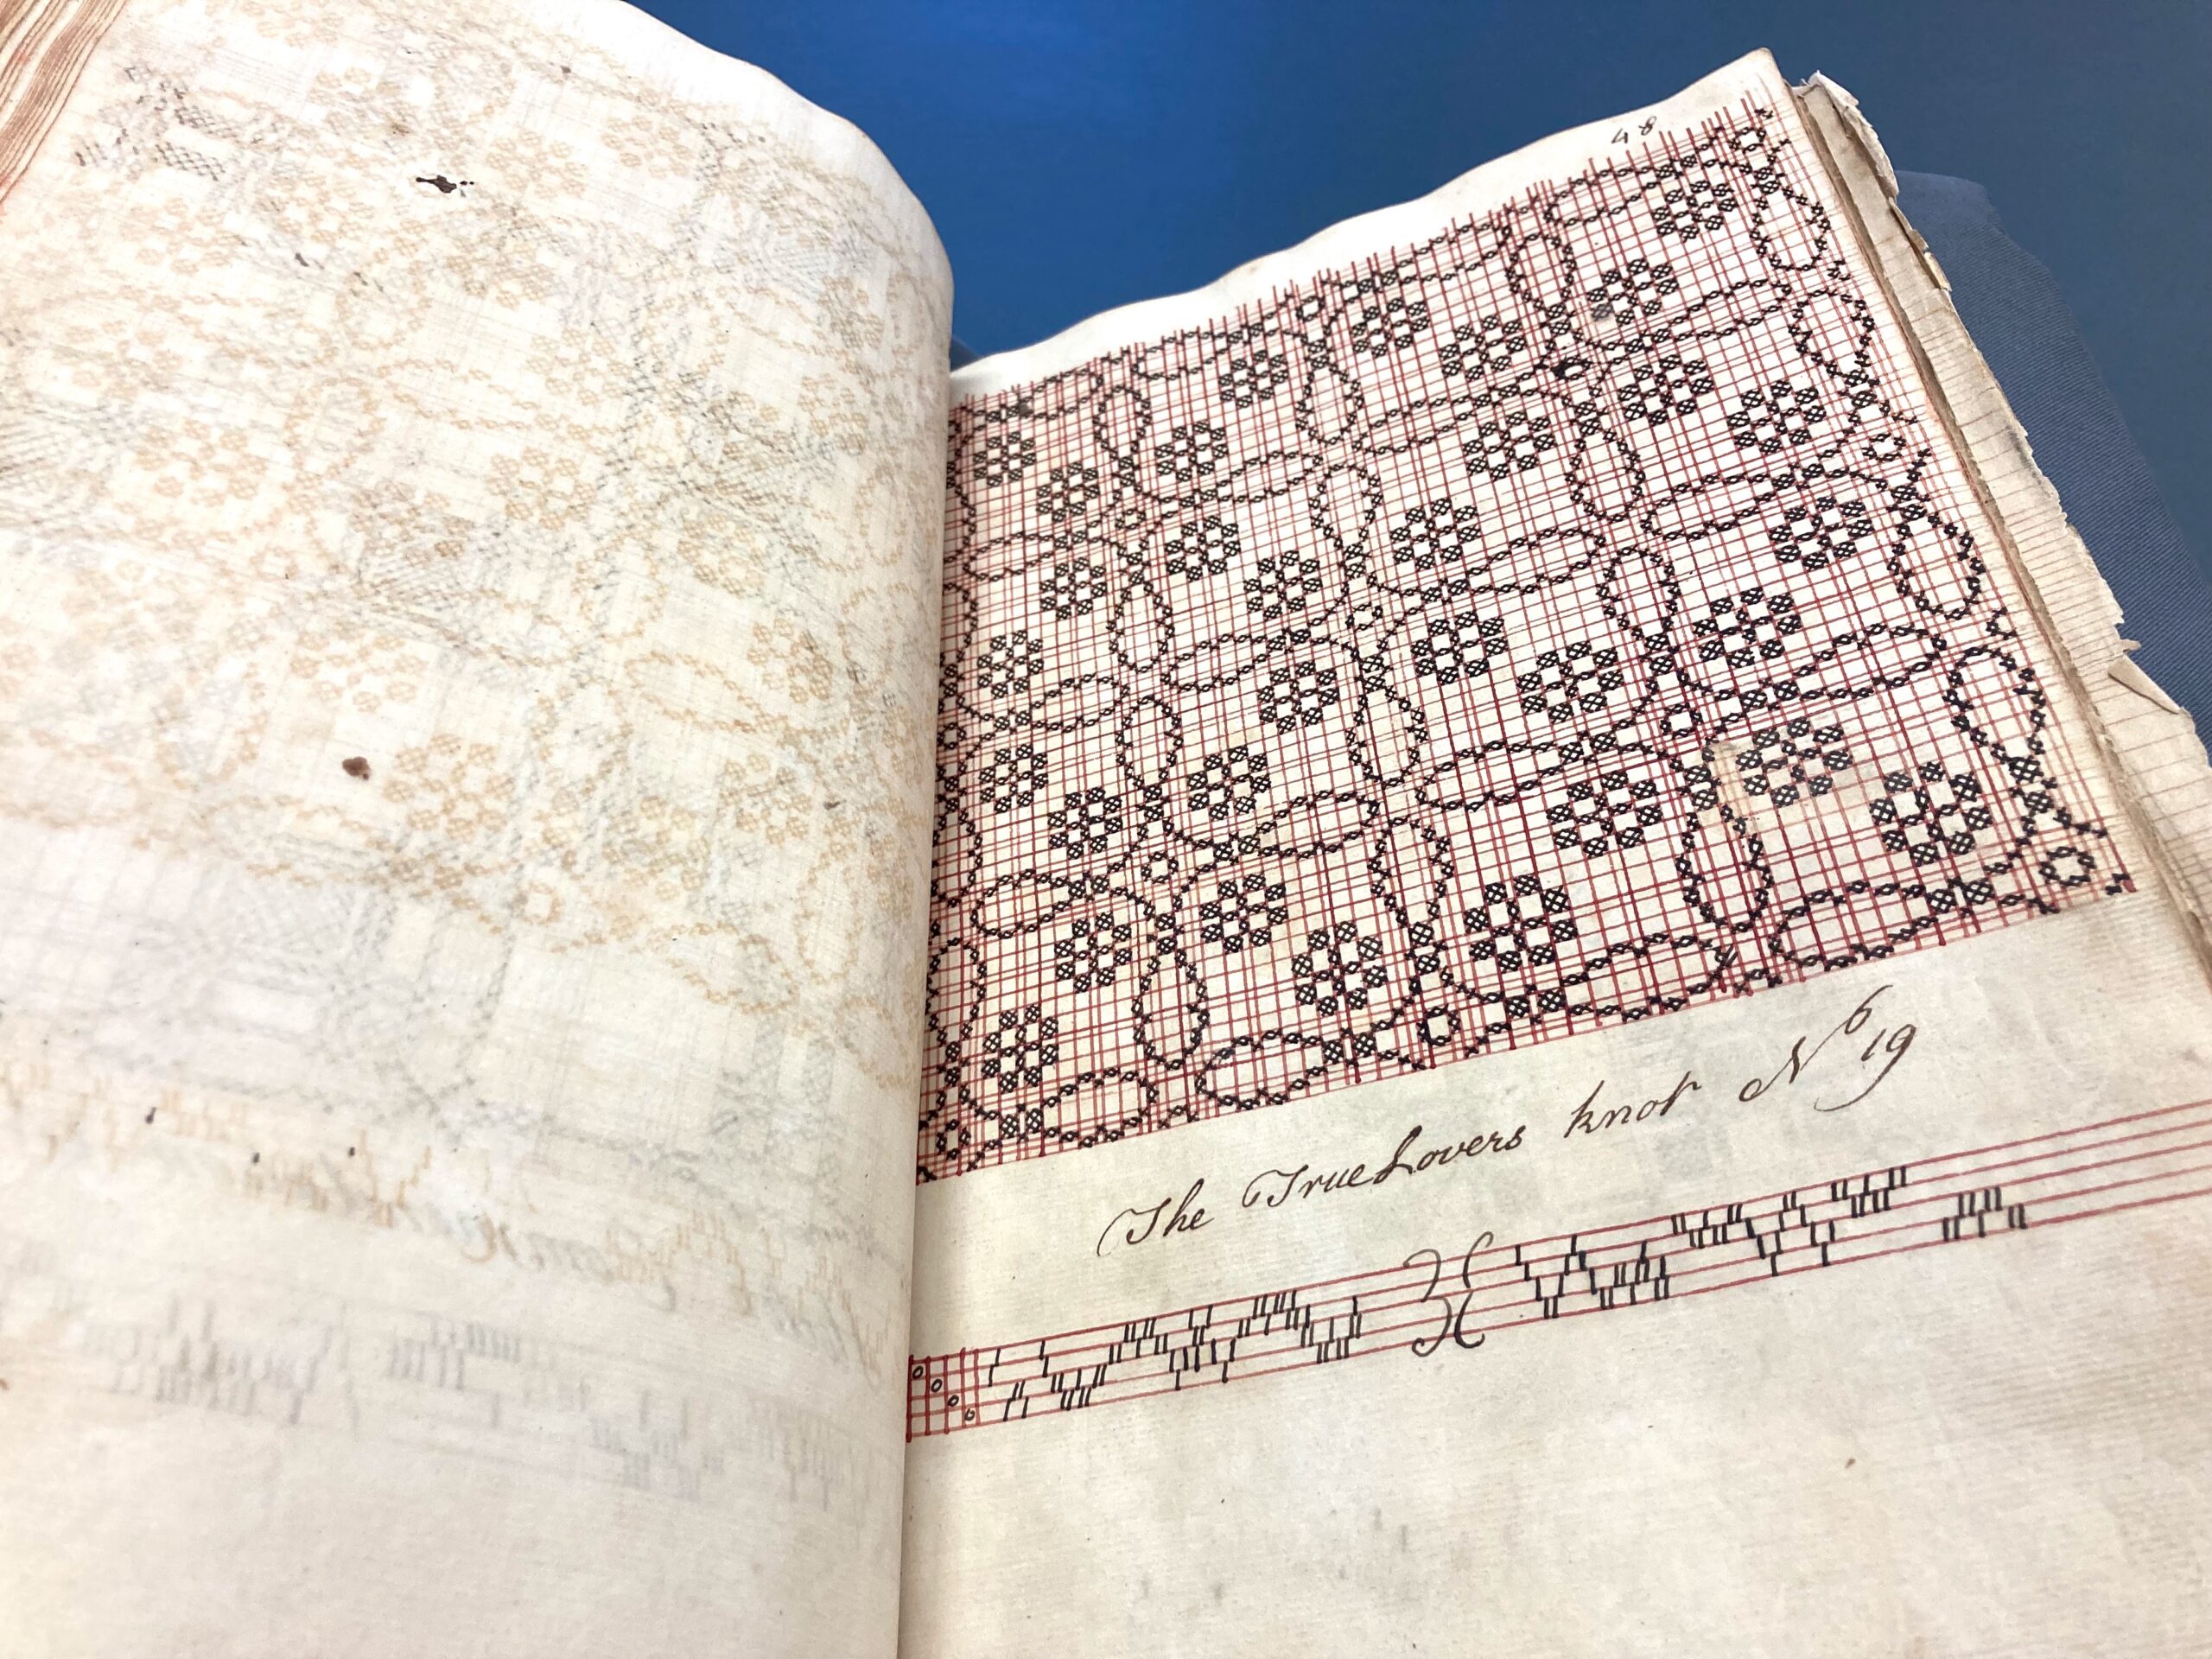 48
The True Lovers knot No 19